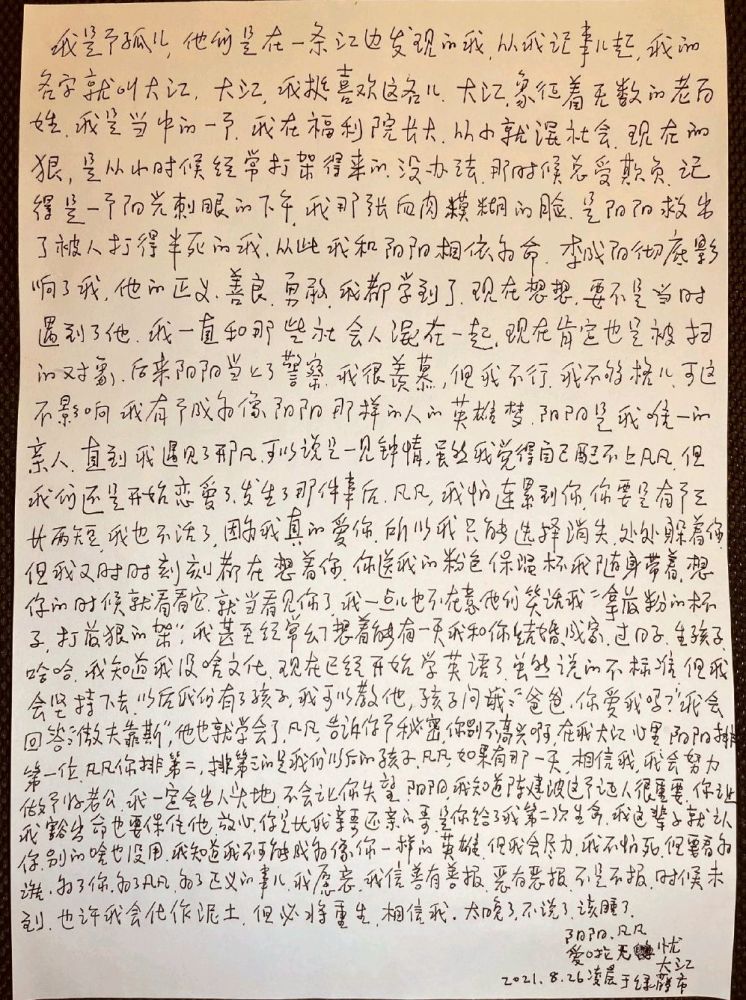 我是个孤儿，他们是在一条江边发现的我，从我记事儿起，我的
名字就叫大江，大江，我挺喜欢这名儿，大江，象征着无数的老百
姓，我是当中的一个，我在福利院长大，从小就混社会，现在的
狠，是从小时候经常打架得来的，没办法，那时候总受欺负，记
得是一个阳光刺眼的下午，我那张血肉模糊的脸，是阳阳救出
了被人打得半死的我，从此我和阳阳相依为命，李成阳彻底影
响了我，他的正义，善良，勇敢，我都学到了，现在想想，要不是当时
遇到了他，我一直和那些社会人混在一起，现在肯定也是被扫
的对象，后来阳阳当上了警察，我很羡慕，但我不行，我不够格儿，可这
不影响我有个成为像阳阳那样的人的英雄梦，阳阳是我唯一的
亲人，直到我遇见了邢凡，可以说是一见钟情，虽然我觉得自己配不上凡凡，但
我们还是开始恋爱了，发生了那件事后，凡凡，我怕连累到你，你要是有个三
长两短，我也不活了，因为我真的爱你，所以我只能选择消失，处处躲着你，
但我又时时刻刻都在想着你，你送我的粉色保温杯我随身带着，想
你的时候就看看它，就当看见你了，我一点儿也不在意他们笑话我"拿最粉的杯
子，打最狠的架"，我甚至经常幻想着能有一天我和你结婚，成家，过日子，生孩子，
哈哈，我知道我没啥文化，现在已经开始学英语了，虽然说的不标准，但我
会坚持下去，以后我们有了孩子，我可以教他，孩子问哦："爸爸，你爱我吗？"我会
回答："傲夫靠斯"，他也就学会了，凡凡，告诉你个秘密，你别不高兴啊，在我大江心里，阳阳排
第一位，凡凡你排第二，排第三的是我们以后的孩子，凡凡如果有那一天，相信我，我会努力
做个好老公，我一定会出人头地，不会让你失望，阳阳我知道陈建波这个证人很重要，你让
我豁出命也要保住他，放心，你是比我亲哥还亲的哥，是你给了我第二次生命，我这辈子就认
你，别的啥也没用，我知道我不可能成为像你一样的英雄，但我会尽力，我不怕死，但要看为
谁，为了你，为了凡凡，为了正义的事儿，我愿意，我信善有善报，恶有恶报，不是不报，时候未
到，也许我会化作泥土，但必将重生，相信我，太晚了，不说了，该睡了，
阳阳，凡凡
爱哦无忧
大江
2021.8.26凌晨于绿藤市